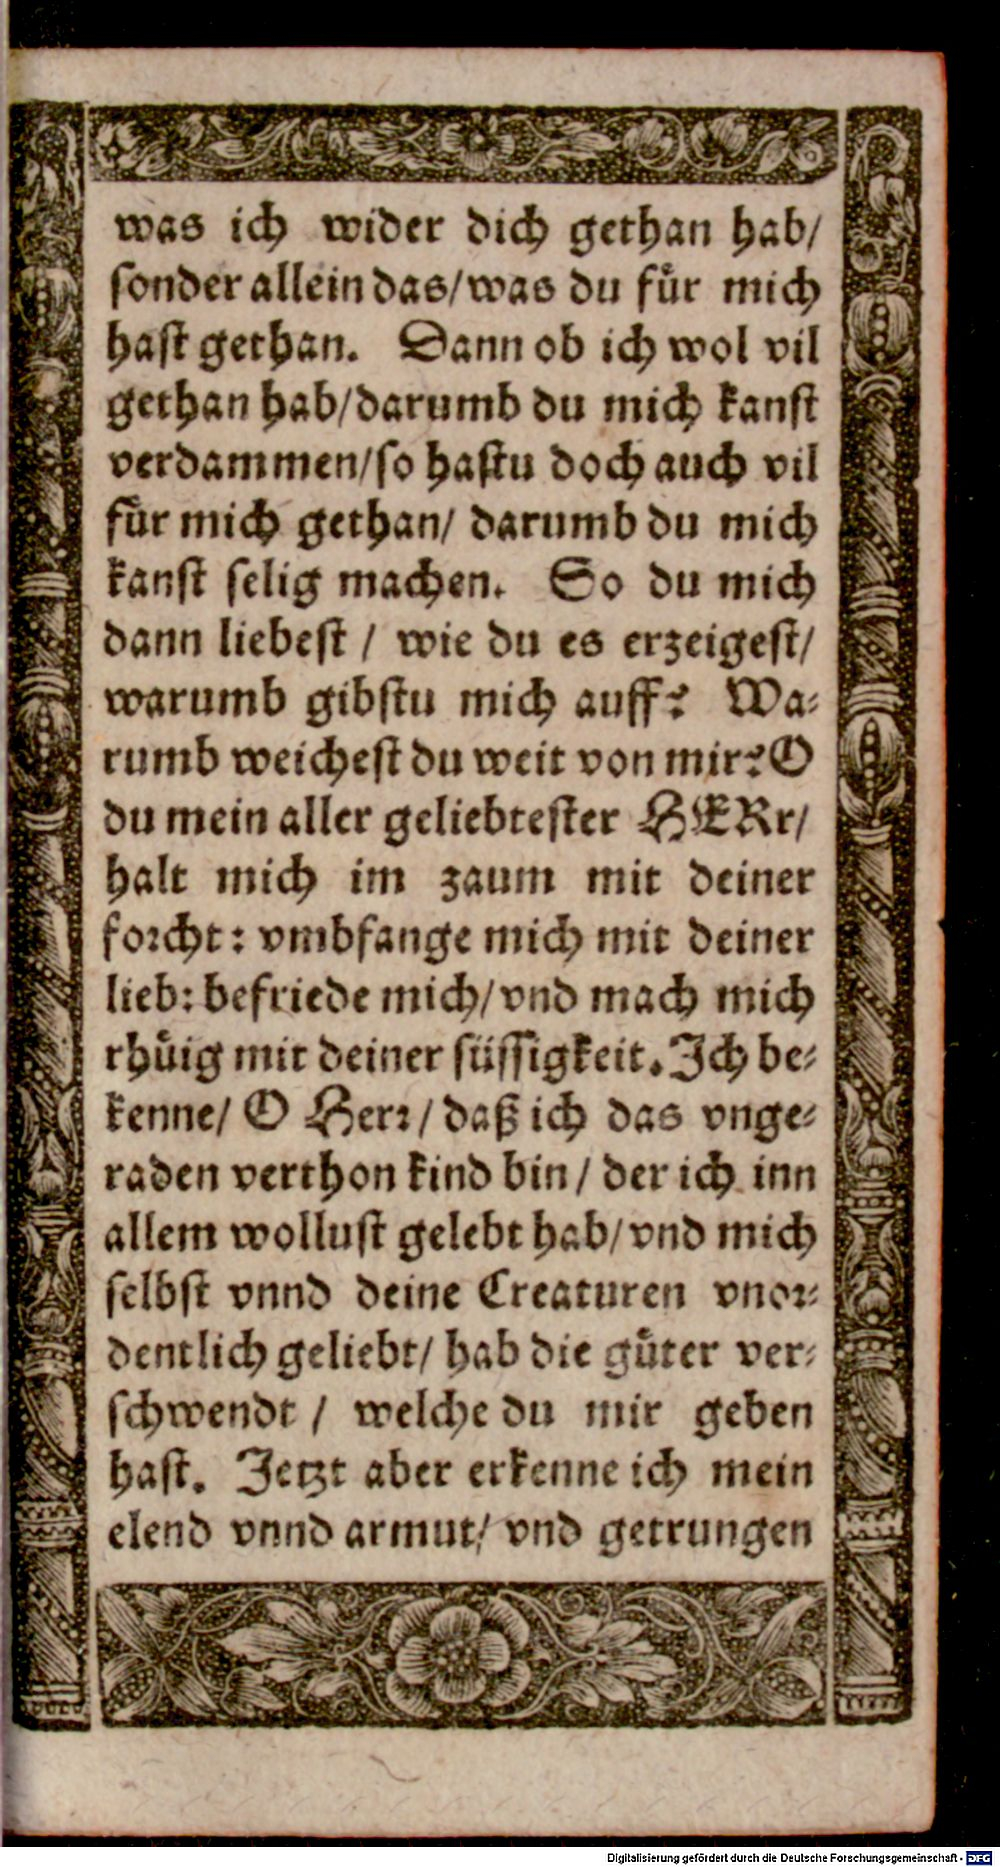 was ich wider dich gethan hab/
sonder allein das/was du für mich
hast gethan. Dann ob ich wol vil
gethan hab/darumb du mich kanst
verdammen/so hastu doch auch vil
für mich gethan/ darumb du mich
kanst selig machen. So du mich
dann liebest / wie du es erzeigest/
warumb gibstu mich auff? Wa-
rumb weichest du weit von mir? O
du mein aller geliebtester HERr/
halt mich im zaum mit deiner
forcht: vmbfange mich mit deiner
lieb: befriede mich/vnd mach mich
rhüig mit deiner süssigkeit. Ich be-
kenne/ O Herr/ daß ich das vnge-
raden verthon kind bin/ der ich inn
allem wollust gelebt hab/vnd mich
selbst vnnd deine Creaturen vnor-
dentlich geliebt/ hab die güter ver-
schwendt / welche du mir geben
hast. Jetzt aber erkenne ich mein
elend vnnd armut/ vnd getrungen
Digitalisierung gefördert durch die Deutsche Forschungsgemeinschaft - DFG